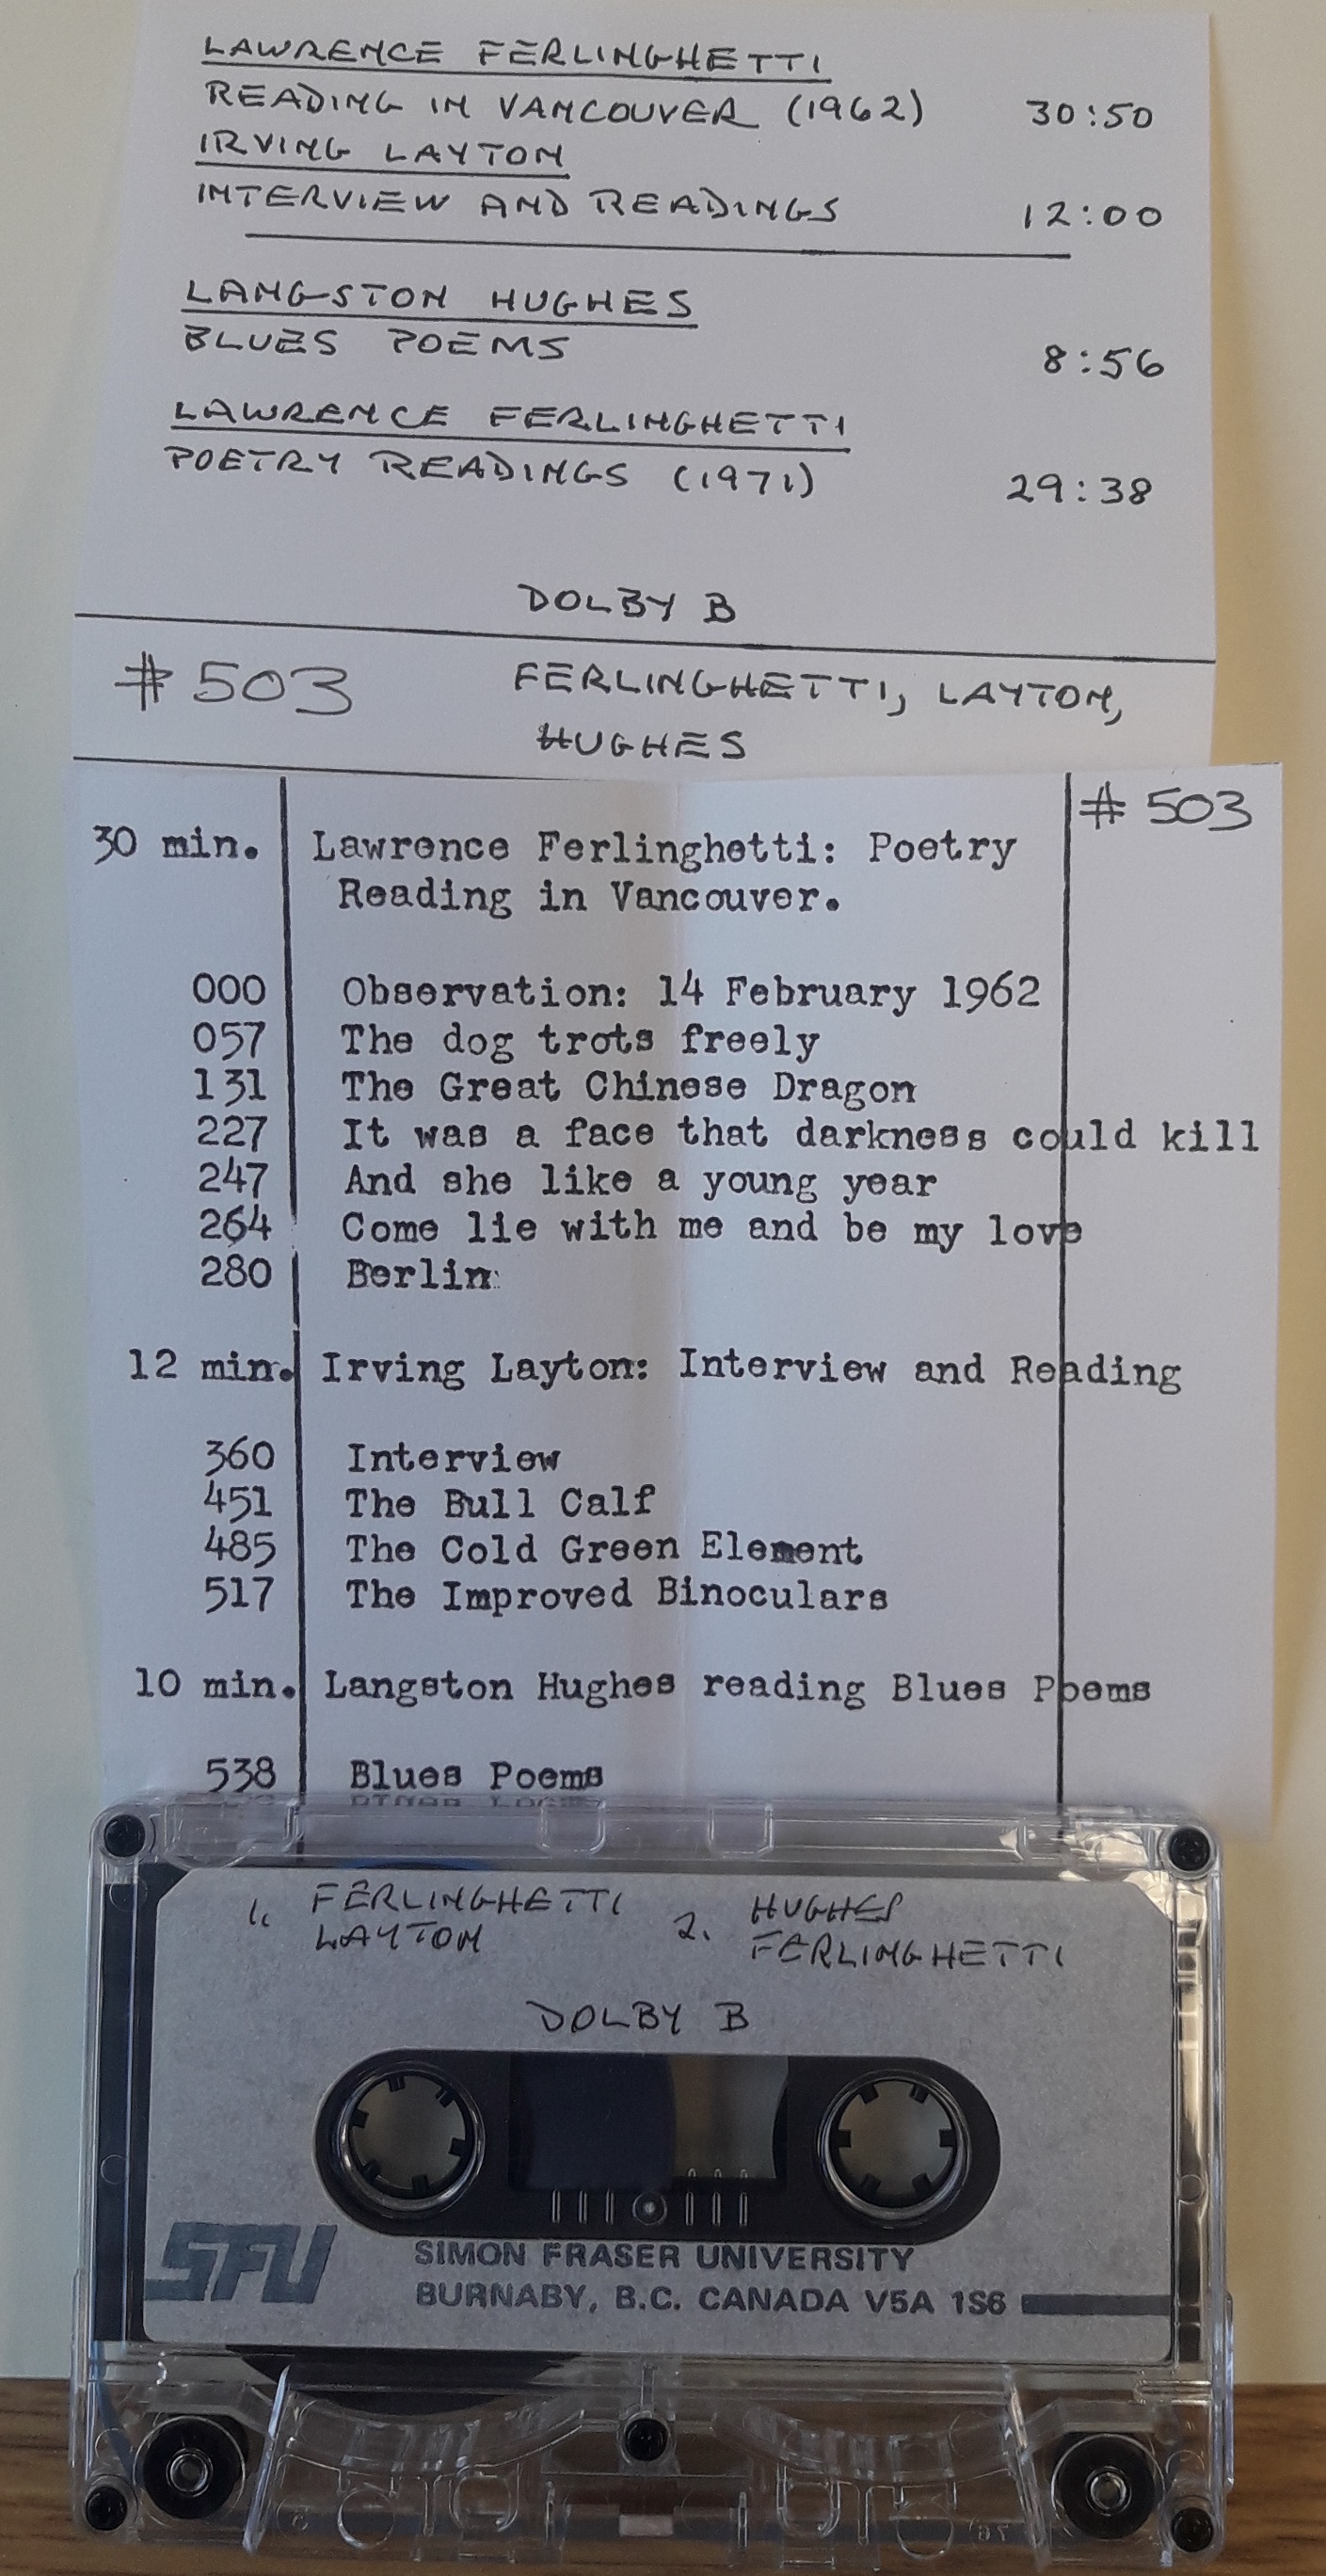 LAWRENCE FERLINGHETTI
READING IN VANCOUVER (1962) 30:50
IRVING LAYTON
INTERVIEW AND READINGS 12:00
LANGSTON HUGHES
BLUES POEMS 8:56
LAWRENCE FERLINGHETTI
POETRY READINGS (1971) 29:38
DOLBY B
#503 FERLINGHETTI, LAYTON,
HUGHES
#503
30 min. Lawrence Ferlinghetti: Poetry
Reading in Vancouver.
000 Observation: 14 February 1962
057 The dog trots freely
131 The Great Chinese Dragon
227 It was a face that darkness could kill
247 And she like a young year
264 Come lie with me and be my love
280 Berlin
12 min. Irving Layton: Interview and Reading
360 Interview
451 The Bull Calf
485 The Cold Green Element
517 The Improved Binoculars
10 min. Langston Hughes reading Blues Poems
538 Blues Poems
1. FERLINGHETTI 2. HUGHES
LAYTON FERLINGHETTI
DOLBY B
SFU
SIMON FRASER UNIVERSITY
BURNABY, B.C. CANADA V5A 1S6